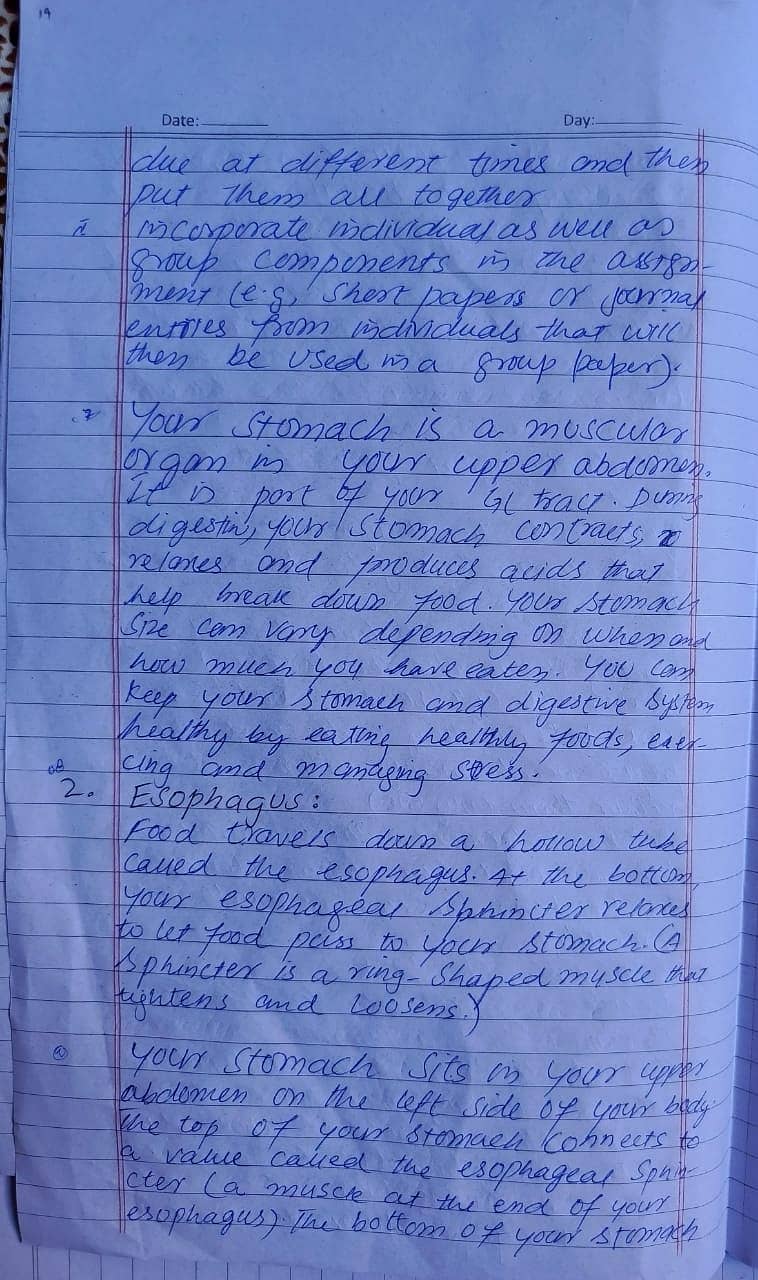 19
Date: Day:
due at different times and then
put them all together
ii incorporate individual as well as
group components in the assign-
ment (e.g, short papers or journal
entries from individuals that will
then be used in a group paper).
Your stomach is a muscular
organ in your upper abdomen.
It is part of your GI tract. During
digestin, your stomach contracts,
relaxes and produces acids that
help break down food. Your stomach
size can vary depending on when and
how much you have eaten. You can
keep your stomach and digestive system
healthy by eating healthly foods, exer-
cing and managing stress.
2. Esophagus:
Food travels down a hollow tube
called the esophagus. At the bottom,
your esophageal sphincter relaxes
to let food pass to your stomach. (A
sphincter is a ring-shaped muscle that
tightens and loosens.)
Your stomach sits in your upper
abdomen on the left side of your body.
The top of your stomach connects to
a value called the esophageal sphin-
cter (a muscle at the end of your
esophagus). The bottom of your stomach